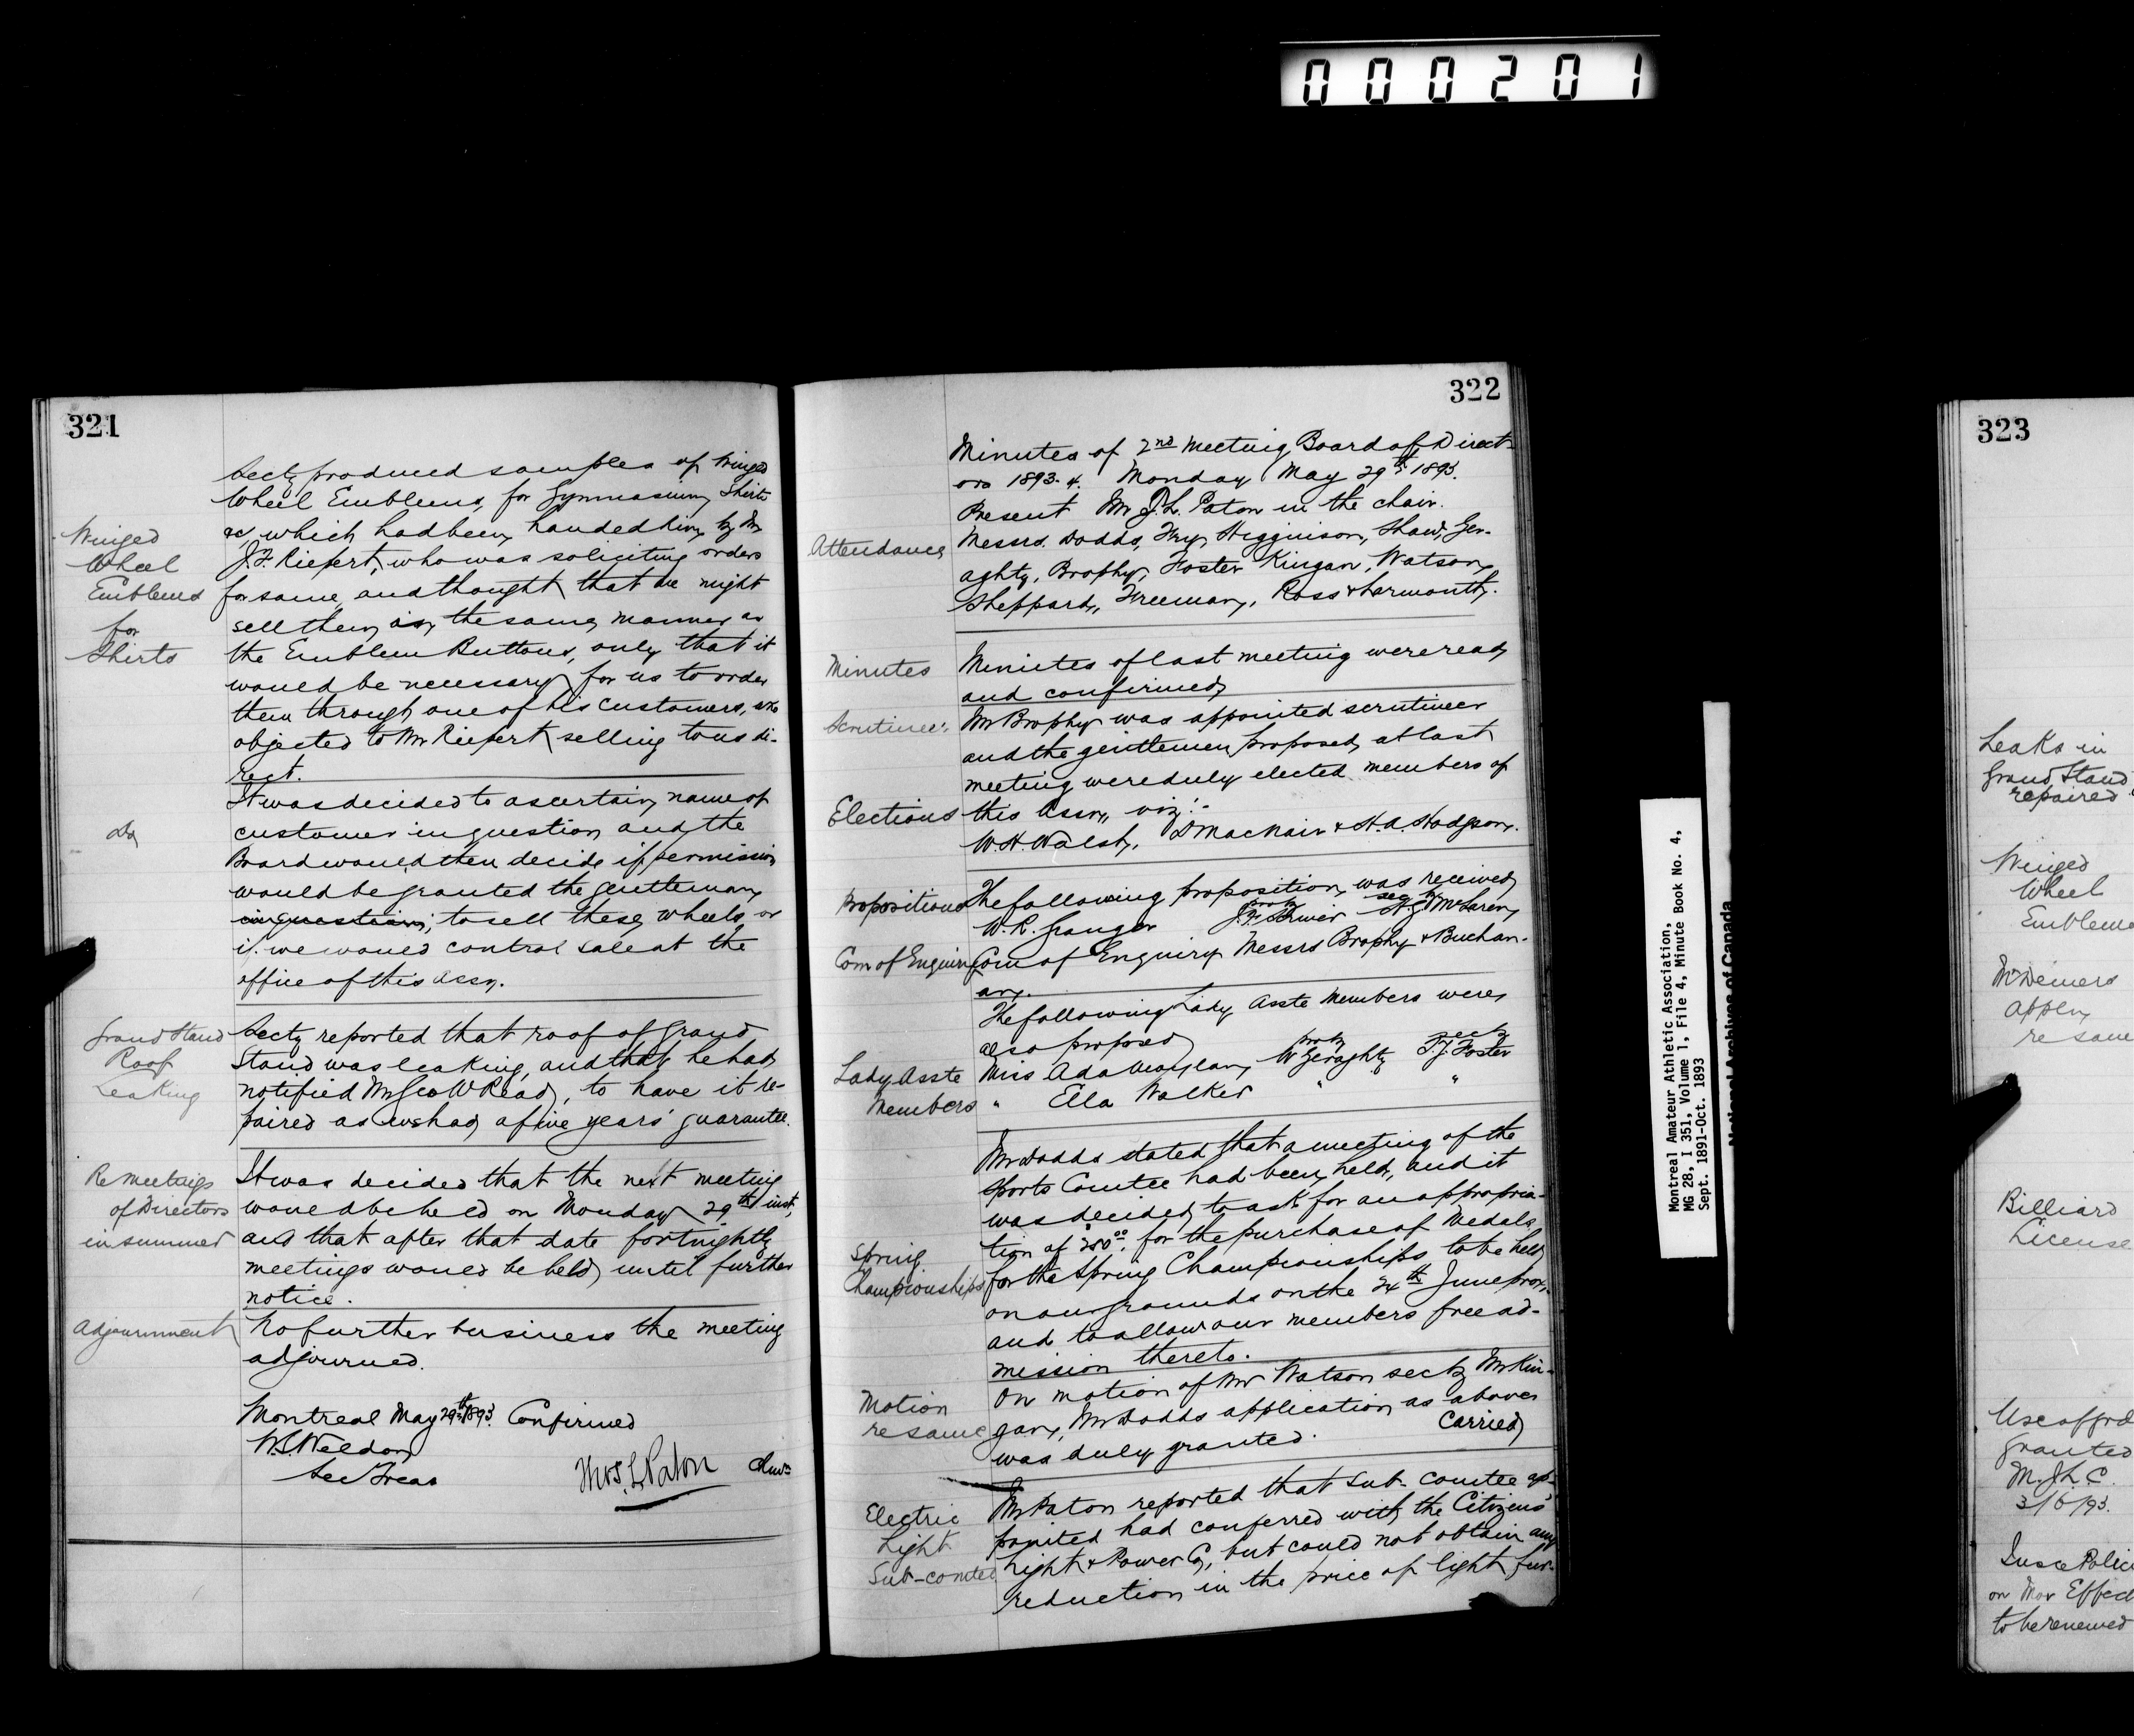 000201
321
Secty produced samples of Winged
Wheel Emblems, for Gymnasium Shirts
&c, which had been handed him by Mr
Winged
Wheel
Emblems
for
Shirts
J. F. Riepert, who was soliciting orders
for same, and thought that we might
sell them in the same manner as
the Emblem Buttons, only that it
would be necessary for us to order
them through one of his customers, who
objected to Mr Riepert selling to us di-
rect.
Do
It was decided to ascertain name of
customer in question and the
Board would then decide if permission
would be granted the gentleman
in question, to sell these wheels, or
if we would control sale at the
office of this Assn.
Grand Stand
Roof
Leaking
Secty reported that roof of Grand
Stand was leaking, and that he had
notified Mr Geo W Read, to have it re-
paired as we had a five years' guarantee.
Re meetings
of Directors
in summer
It was decided that the next meeting
would be held on Monday 29th inst,
and that after that date fortnightly
meetings would be held until further
notice.
Adjournment
No further business the meeting
adjourned.
Montreal May 29th 1893. Confirmed
W.S. Weldon
Sec Treas
Thos. L. Paton Chmn
322
Minutes of 2nd Meeting Board of Direct-
ors 1893-4. Monday May 29th 1893.
Present Mr J.L. Paton in the chair.
Attendance
Messrs. Dodds, Fry, Higginson, Shaw, Ger-
aghty, Brophy, Foster Kingan, Watson,
Sheppard, Freeman, Ross & Larmonth.
Minutes
Minutes of last meeting were read
and confirmed
Scrutineer
Mr Brophy was appointed scrutineer
and the gentlemen proposed at last
meeting were duly elected members of
Elections
this Assn, viz:-
W.H. Walsh, D MacNair & H.A. Hodgson.
Propositions
The following proposition was received
prop sec by
W.R. Granger
McLaren
Com of Enquiry
Com of Enquiry Messrs Brophy & Buchan-
an.
The following Lady Asste Members were
also proposed
prop Secty
Lady Asste
Members
Miss Ada W Geraghty T.J. Foster
" Ella Walker " "
Mr Dodds stated that a meeting of the
Sports Comtee had been held, and it
was decided to ask for an appropria-
tion of for the purchase of Medals
Spring
Championships
for the Spring Championships to be held
on our grounds on the 24th June prox,
and to allow our members free ad-
mission thereto.
Motion
re same
On motion of Mr Watson secty Mr Kin-
gan, Mr Dodds application as above
was duly granted. Carried
Electric
Light
Sub-comtee
Mr Paton reported that Sub-comtee ap-
pointed had conferred with the Citizens'
Light & Power Co, but could not obtain any
reduction in the price of light fur-
Montreal Amateur Athletic Association,
MG 28, I 351, Volume 1, File 4, Minute Book No. 4,
Sept. 1891-Oct. 1893
National Archives of Canada
323
Leaks in
Grand Stand
repaired
Winged
Wheel
Emblems
Mr Demers
Appln
re same
Billiard
License
Use of
granted
M.J.L.C.
3/6/93.
Insce Polic
on Effect
to be renewed